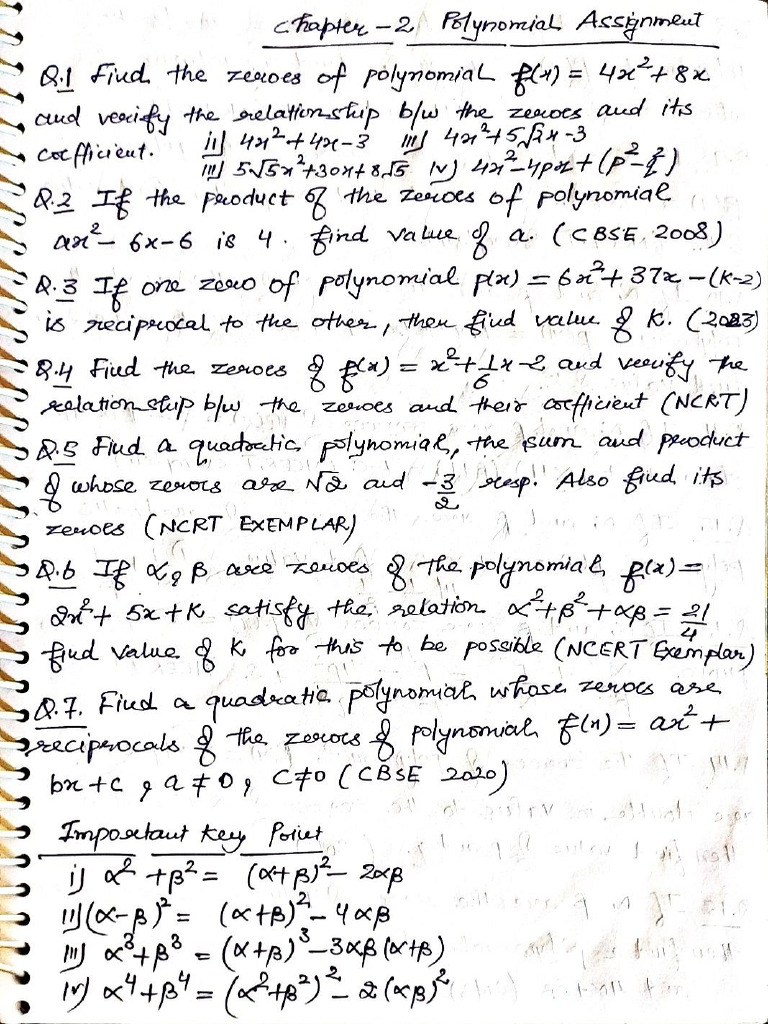 Chapter - 2 Polynomial Assignment
Q.1 Find the zeroes of polynomial f(x) = 4x² + 8x
and verify the relationship b/w the zeroes and its
coefficient. ii) 4x² + 4x - 3 iii) 4x² + 5√2x - 3
iii) 5√5x² + 30x + 8√5 iv) 4x² - 4px + (p² - q²)
Q.2 If the product of the zeroes of polynomial
ax² - 6x - 6 is 4. find value of a. (CBSE 2008)
Q.3 If one zero of polynomial p(x) = 6x² + 37x - (K-2)
is reciprocal to the other, then find value of K. (2023)
Q.4 Find the zeroes of f(x) = x² + 1/6 x - 2 and verify the
relationship b/w the zeroes and their coefficient (NCRT)
Q.5 Find a quadratic polynomial, the sum and product
of whose zeroes are √2 and -3/2 resp. Also find its
zeroes (NCRT EXEMPLAR)
Q.6 If α, β are zeroes of the polynomial f(x) =
2x² + 5x + K satisfy the relation α² + β² + αβ = 21/4
find value of K for this to be possible (NCERT Exemplar)
Q.7. Find a quadratic polynomial whose zeroes are
reciprocals of the zeroes of polynomial f(x) = ax² +
bx + c, a ≠ 0, C ≠ 0 (CBSE 2020)
Important Key Point
i) α² + β² = (α + β)² - 2αβ
ii) (α - β)² = (α + β)² - 4αβ
iii) α³ + β³ = (α + β)³ - 3αβ(α + β)
iv) α⁴ + β⁴ = (α² + β²)² - 2(αβ)²